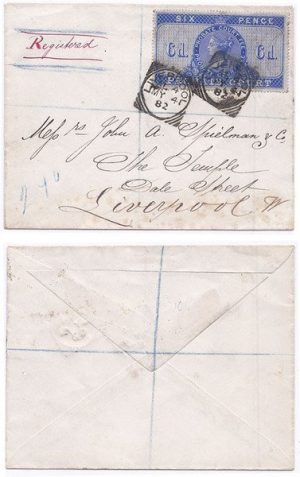 Registered.
SIX PENCE
6d. 6d.
COURT
LIVERPOOL
MY 4
82
Messrs John A. Spielman & Co.
The Temple
Dale Street
Liverpool W